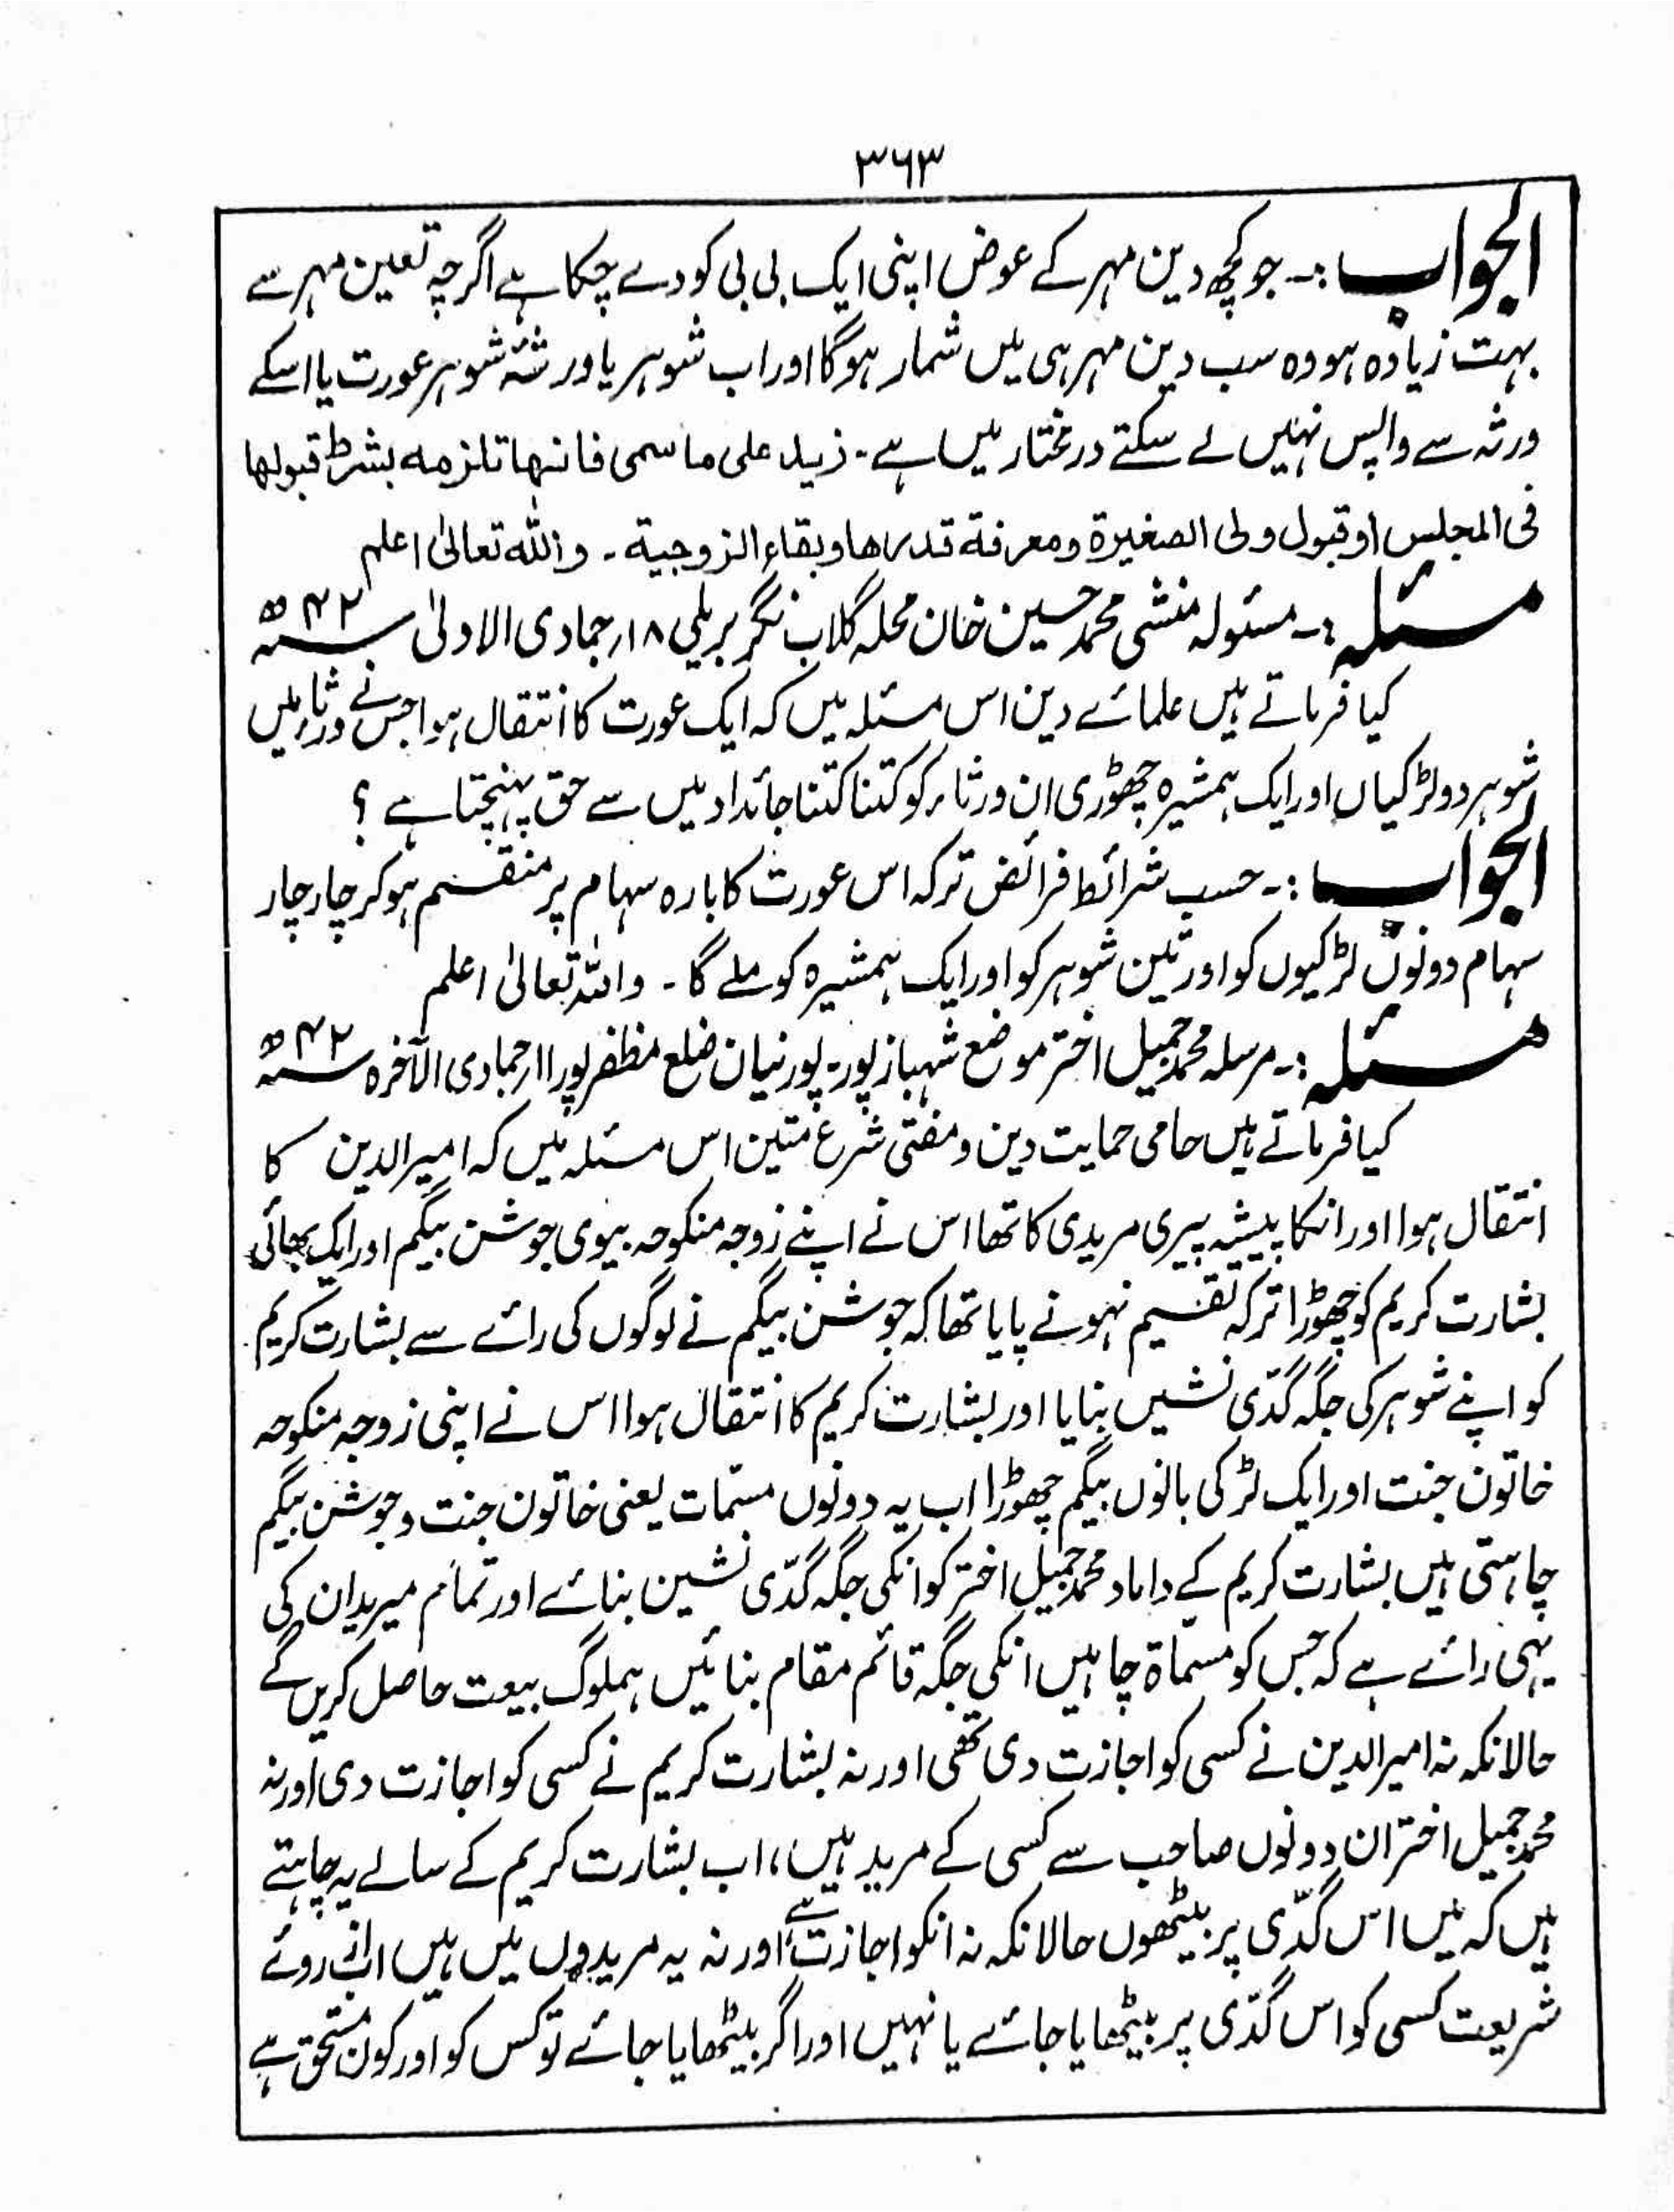 ۳۶۳
الجواب :۔ جو کچھ دین مہر کے عوض اپنی ایک بی بی کو دے چکا ہے اگرچہ تعین مہر سے
بہت زیادہ ہو وہ سب دین مہر ہی میں شمار ہو گا اور اب شوہر یا ورثۂ شوہر عورت یا اسکے
ورثہ سے واپس نہیں لے سکتے درمختار میں ہے۔ زید علی ما سمی فانہا تلزمہ بشرط قبولھا
فی المجلس او قبول ولی الصغیرۃ ومعرفۃ قدرھا وبقاء الزوجیۃ ۔ واللہ تعالیٰ اعلم
مسئلہ :۔ مسئولہ منشی محمد حسین خان محلہ گلاب نگر بریلی ۱۸؍ جمادی الاولیٰ سنہ ۴۲ ھ
کیا فرماتے ہیں علمائے دین اس مسئلہ میں کہ ایک عورت کا انتقال ہوا جس نے ورثاء میں
شوہر دو لڑکیاں اور ایک ہمشیرہ چھوڑی ان ورثاء کو کتنا کتنا جائداد میں سے حق پہنچتا ہے ؟
الجواب :۔ حسب شرائط فرائض ترکہ اس عورت کا بارہ سہام پر منقسم ہو کر چار چار
سہام دونوں لڑکیوں کو اور تین شوہر کو اور ایک ہمشیرہ کو ملے گا ۔ واللہ تعالیٰ اعلم
مسئلہ :۔ مرسلہ محمد جمیل اختر موضع شہباز پور۔ پورنیان ضلع مظفر پور ۱۱؍ جمادی الآخرہ سنہ ۴۲ ھ
کیا فرماتے ہیں حامی حمایت دین و مفتی شرع متین اس مسئلہ میں کہ امیر الدین کا
انتقال ہوا اور انکا پیشہ پیری مریدی کا تھا اس نے اپنے زوجہ منکوحہ بیوی جوشن بیگم اور ایک بھائی
بشارت کریم کو چھوڑا ترکہ تقسیم نہونے پایا تھا کہ جوشن بیگم نے لوگوں کی رائے سے بشارت کریم
کو اپنے شوہر کی جگہ گدّی نشیں بنایا اور بشارت کریم کا انتقال ہوا اس نے اپنی زوجہ منکوحہ
خاتون جنت اور ایک لڑکی بانوں بیگم چھوڑا اب یہ دونوں مسمّات یعنی خاتون جنت و جوشن بیگم
چاہتی ہیں بشارت کریم کے داماد محمد جمیل اختر کو انکی جگہ گدّی نشین بنائے اور تمام میریدان کی
یہی رائے ہے کہ جس کو مسمّاۃ چاہیں انکی جگہ قائم مقام بنائیں ہملوگ بیعت حاصل کریں گے
حالانکہ نہ امیر الدین نے کسی کو اجازت دی تھی اور نہ بشارت کریم نے کسی کو اجازت دی اور نہ
محمد جمیل اختر ان دونوں صاحب سے کسی کے مرید ہیں، اب بشارت کریم کے سالے یہ چاہتے
ہیں کہ میں اس گدّی پر بیٹھوں حالانکہ نہ انکو اجازت ہے اور نہ یہ مریدوں میں ہیں اب ازروئے
شریعت کسی کو اس گدّی پر بیٹھایا جائے یا نہیں اور اگر بیٹھایا جائے تو کس کو اور کون مستحق ہے